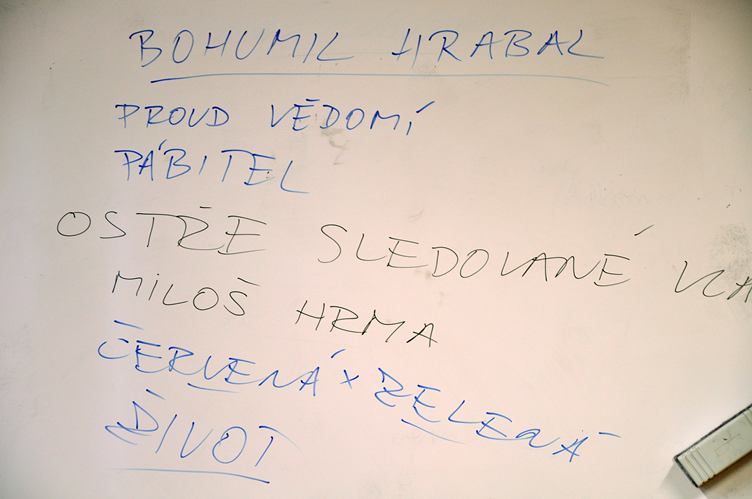 BOHUMIL HRABAL
PROUD VĚDOMÍ
PÁBITEL
OSTŘE SLEDOVANÉ VLA
MILOŠ HRMA
ČERVENÁ x ZELENÁ
ŽIVOT